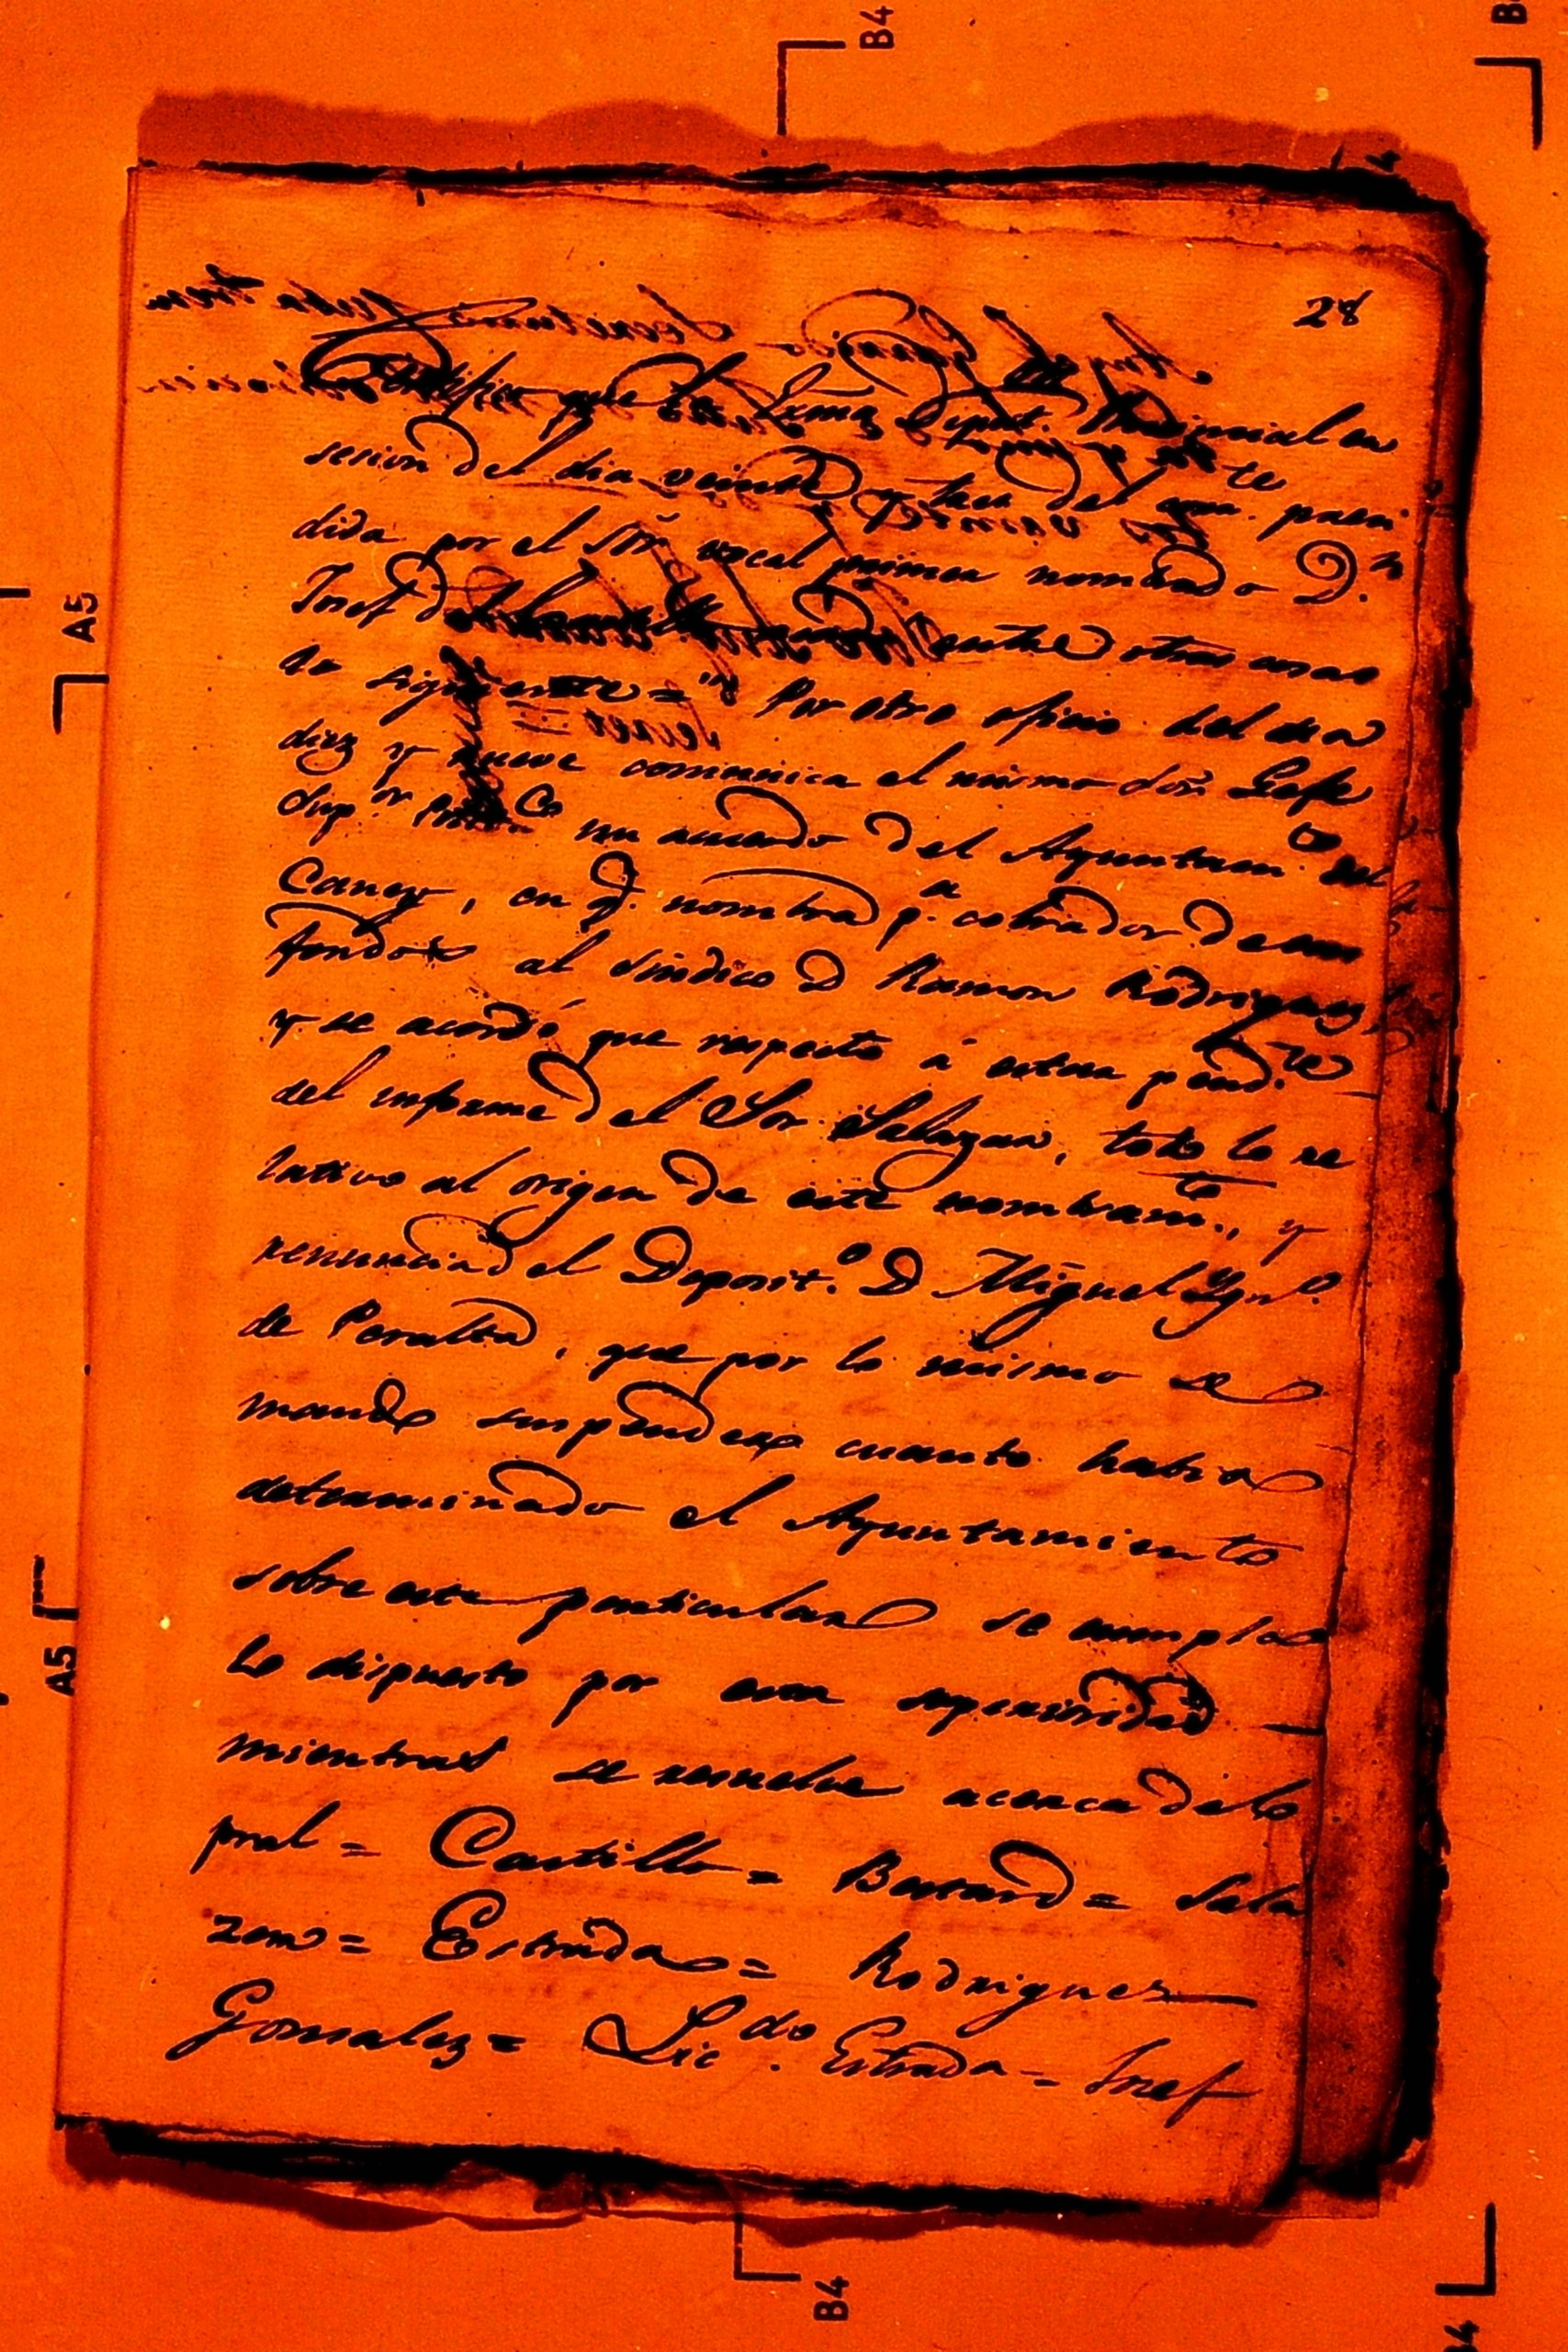 28
Certifico que la Exma Diput. Provincial en
sesion del dia veinte y tres del corr.te presi
dida por el Sōr vocal primer nombrado D.n
Josef de entre otras cosas
lo siguiente = "Por otro oficio del dia
diez y nueve comunica el mismo Sor. Gefe
Sup.or Polit.co un acuerdo del Ayuntam.to del
Caney, en q. nombra p.a cobrador de sus
fondos al sindico D Ramon Rodriguez,
y se acordó que respecto á estar pend.te
del informe del Sor Salazar, todo lo re
lativo al origen de este nombram.to, y
renuncia del Deposit.o D Miguel Ygn.o
de Peralta, que por lo mismo se
mando suspender cuanto habia
determinado el Ayuntamiento
sobre este particular se cumpla
lo dispuesto por esta superioridad
mientras se resuelve acerca delo
pral = Castillo = Bernard = Sala
zar = Estrada = Rodriguez
Gonsalez = Lic.do Estrada = Josef
A5
A5
B4
B4